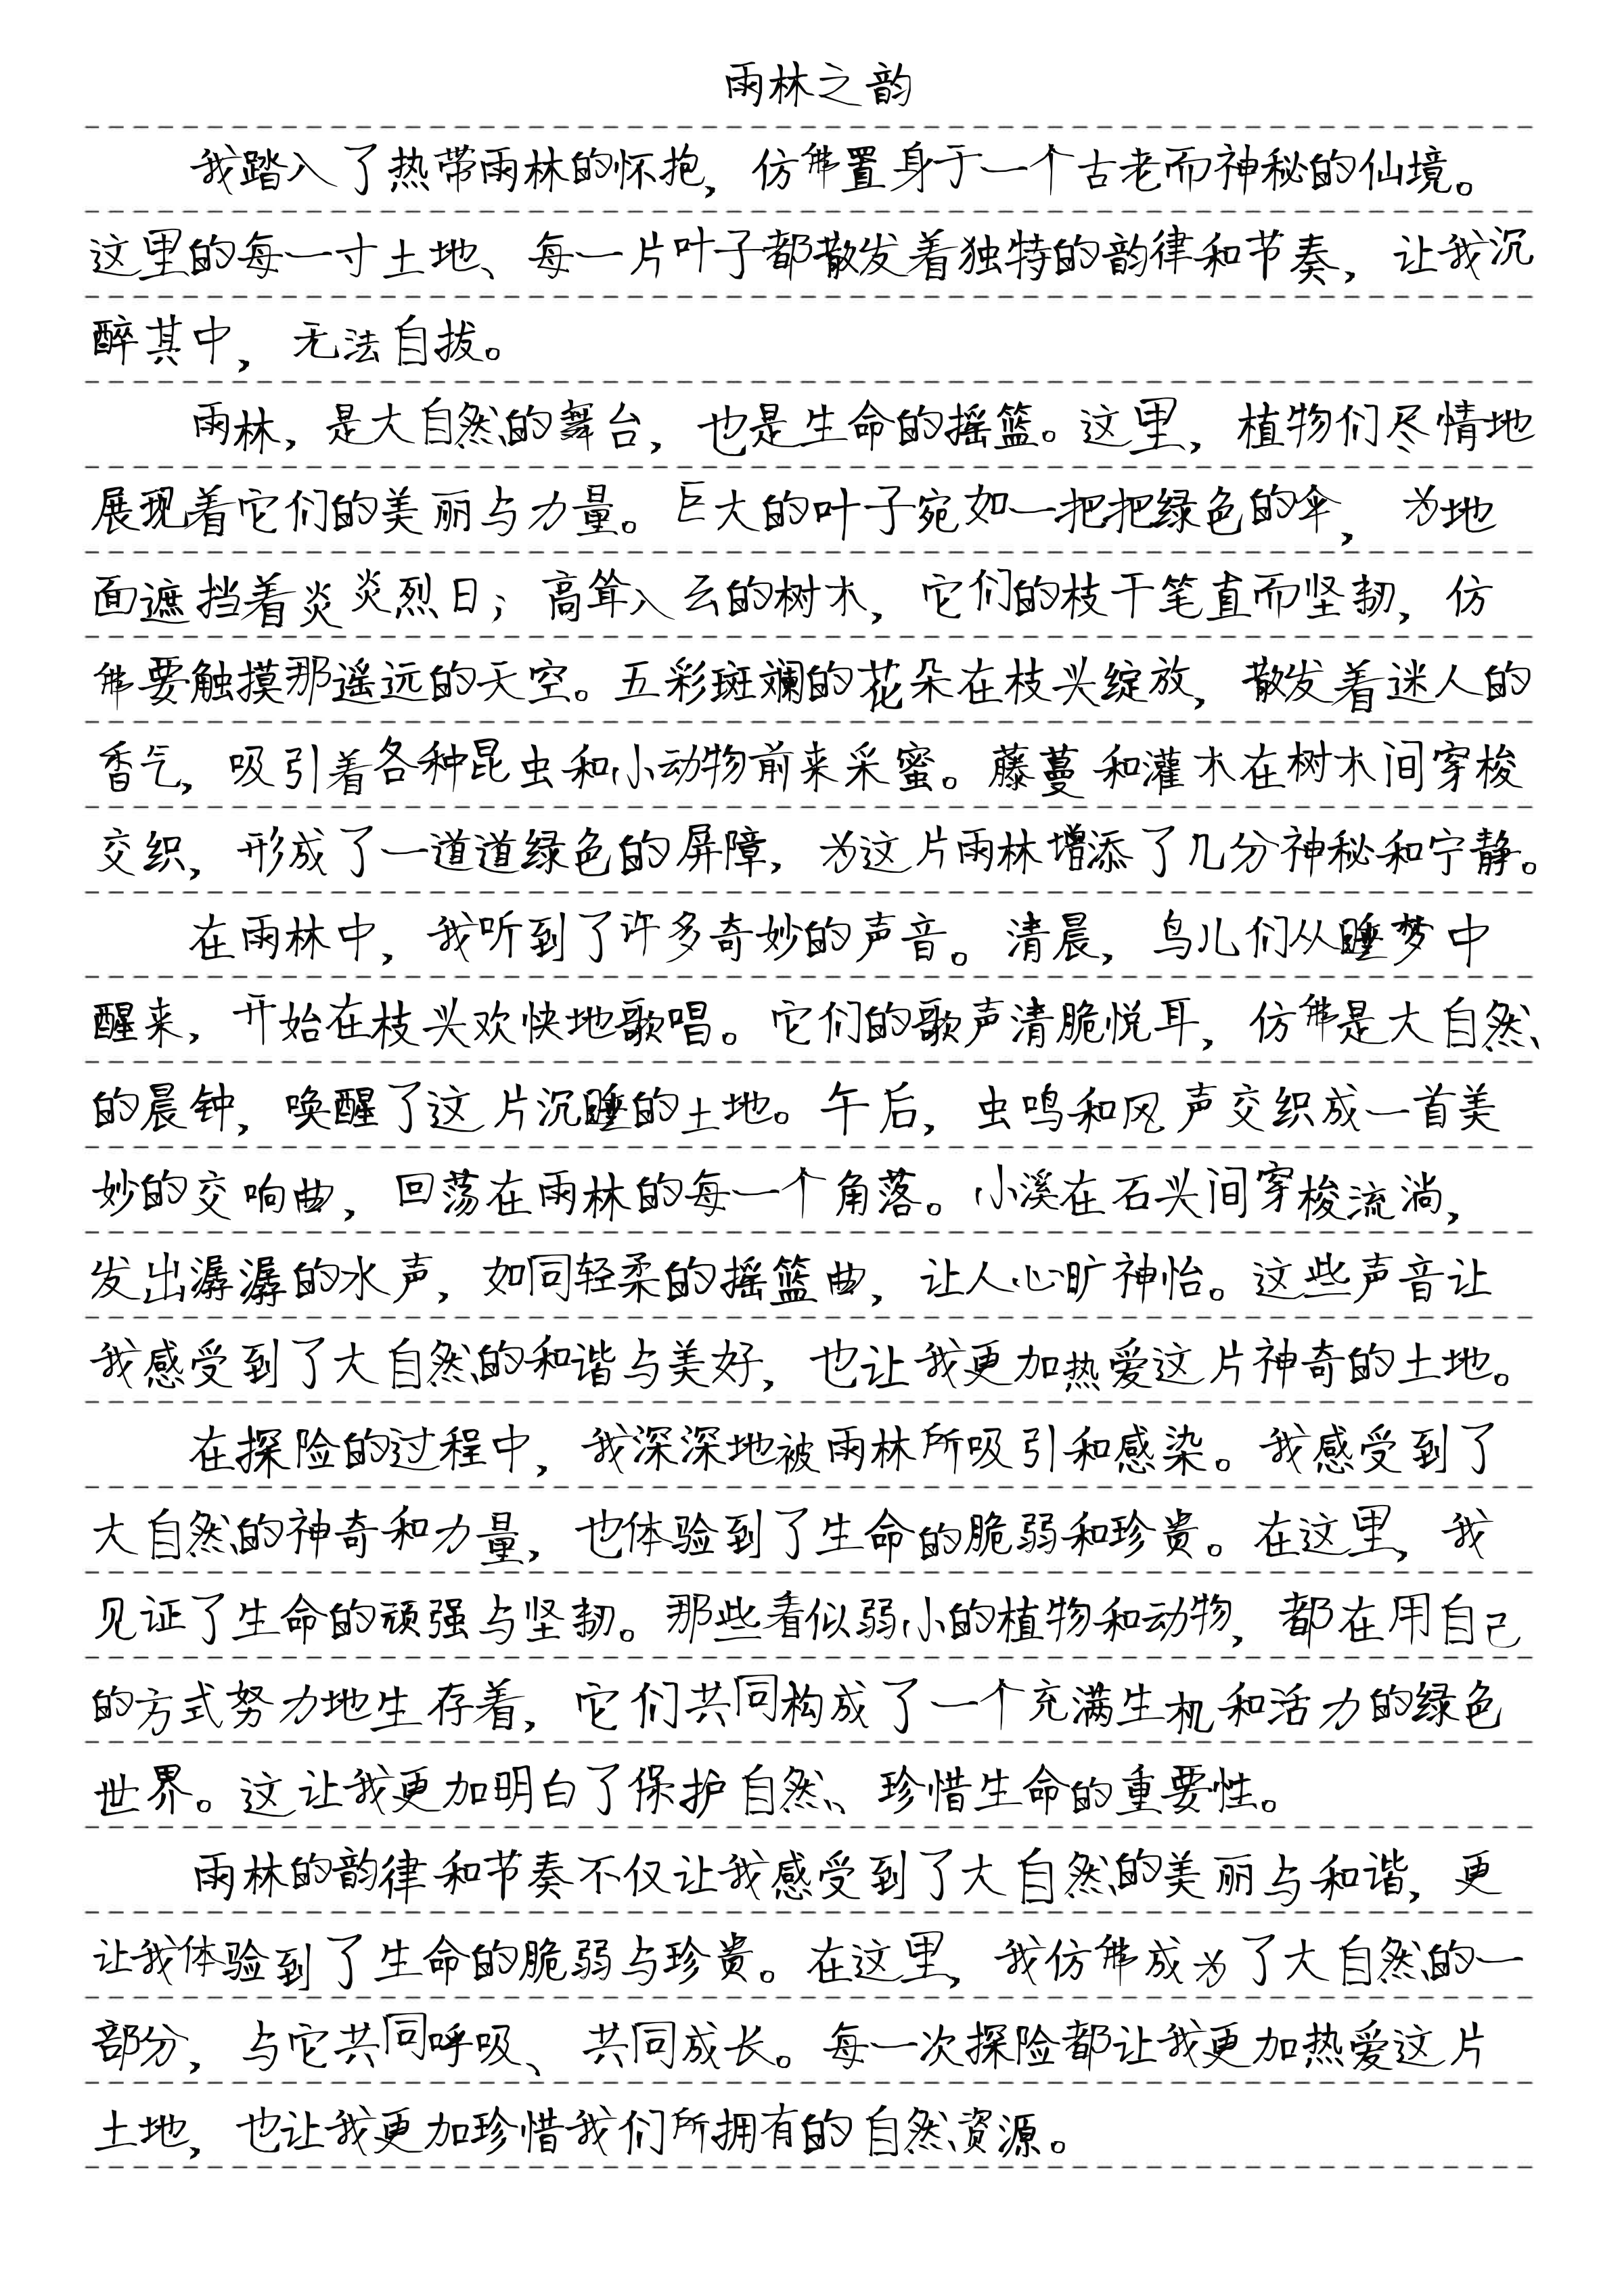 雨林之韵
我踏入了热带雨林的怀抱，仿佛置身于一个古老而神秘的仙境。
这里的每一寸土地、每一片叶子都散发着独特的韵律和节奏，让我沉
醉其中，无法自拔。
雨林，是大自然的舞台，也是生命的摇篮。这里，植物们尽情地
展现着它们的美丽与力量。巨大的叶子宛如一把把绿色的伞，为地
面遮挡着炎炎烈日；高耸入云的树木，它们的枝干笔直而坚韧，仿
佛要触摸那遥远的天空。五彩斑斓的花朵在枝头绽放，散发着迷人的
香气，吸引着各种昆虫和小动物前来采蜜。藤蔓和灌木在树木间穿梭
交织，形成了一道道绿色的屏障，为这片雨林增添了几分神秘和宁静。
在雨林中，我听到了许多奇妙的声音。清晨，鸟儿们从睡梦中
醒来，开始在枝头欢快地歌唱。它们的歌声清脆悦耳，仿佛是大自然
的晨钟，唤醒了这片沉睡的土地。午后，虫鸣和风声交织成一首美
妙的交响曲，回荡在雨林的每一个角落。小溪在石头间穿梭流淌，
发出潺潺的水声，如同轻柔的摇篮曲，让人心旷神怡。这些声音让
我感受到了大自然的和谐与美好，也让我更加热爱这片神奇的土地。
在探险的过程中，我深深地被雨林所吸引和感染。我感受到了
大自然的神奇和力量，也体验到了生命的脆弱和珍贵。在这里，我
见证了生命的顽强与坚韧。那些看似弱小的植物和动物，都在用自己
的方式努力地生存着，它们共同构成了一个充满生机和活力的绿色
世界。这让我更加明白了保护自然、珍惜生命的重要性。
雨林的韵律和节奏不仅让我感受到了大自然的美丽与和谐，更
让我体验到了生命的脆弱与珍贵。在这里，我仿佛成为了大自然的一
部分，与它共同呼吸、共同成长。每一次探险都让我更加热爱这片
土地，也让我更加珍惜我们所拥有的自然资源。